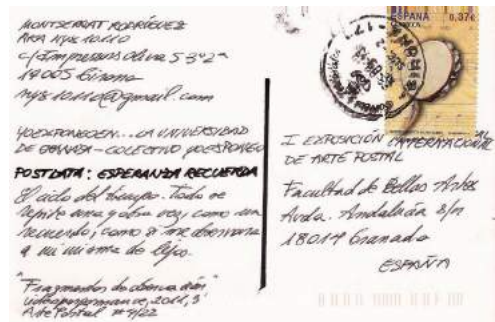 MONTSERRAT RODRÍGUEZ
AKA nys 10.110
c/ Impressors Oliva 5 3º 2ª
17005 Girona
nys10.110@gmail.com
YOEXPONGOEN... LA UNIVERSIDAD
DE GRANADA - COLECTIVO YOEXPONGO
POSTDATA: ESPERANZA RECUERDA
El ciclo del tiempo. Todo se
repite una y otra vez, como un
recuerdo, como si me observara
a mí misma de lejos.
"Fragmentos de observación"
videoperformance, 2011, 3'
Arte Postal # 9/22
ESPAÑA 0,37€
CORREOS
I EXPOSICIÓN INTERNACIONAL
DE ARTE POSTAL
Facultad de Bellas Artes
Avda. Andalucía s/n
18014 Granada
ESPAÑA